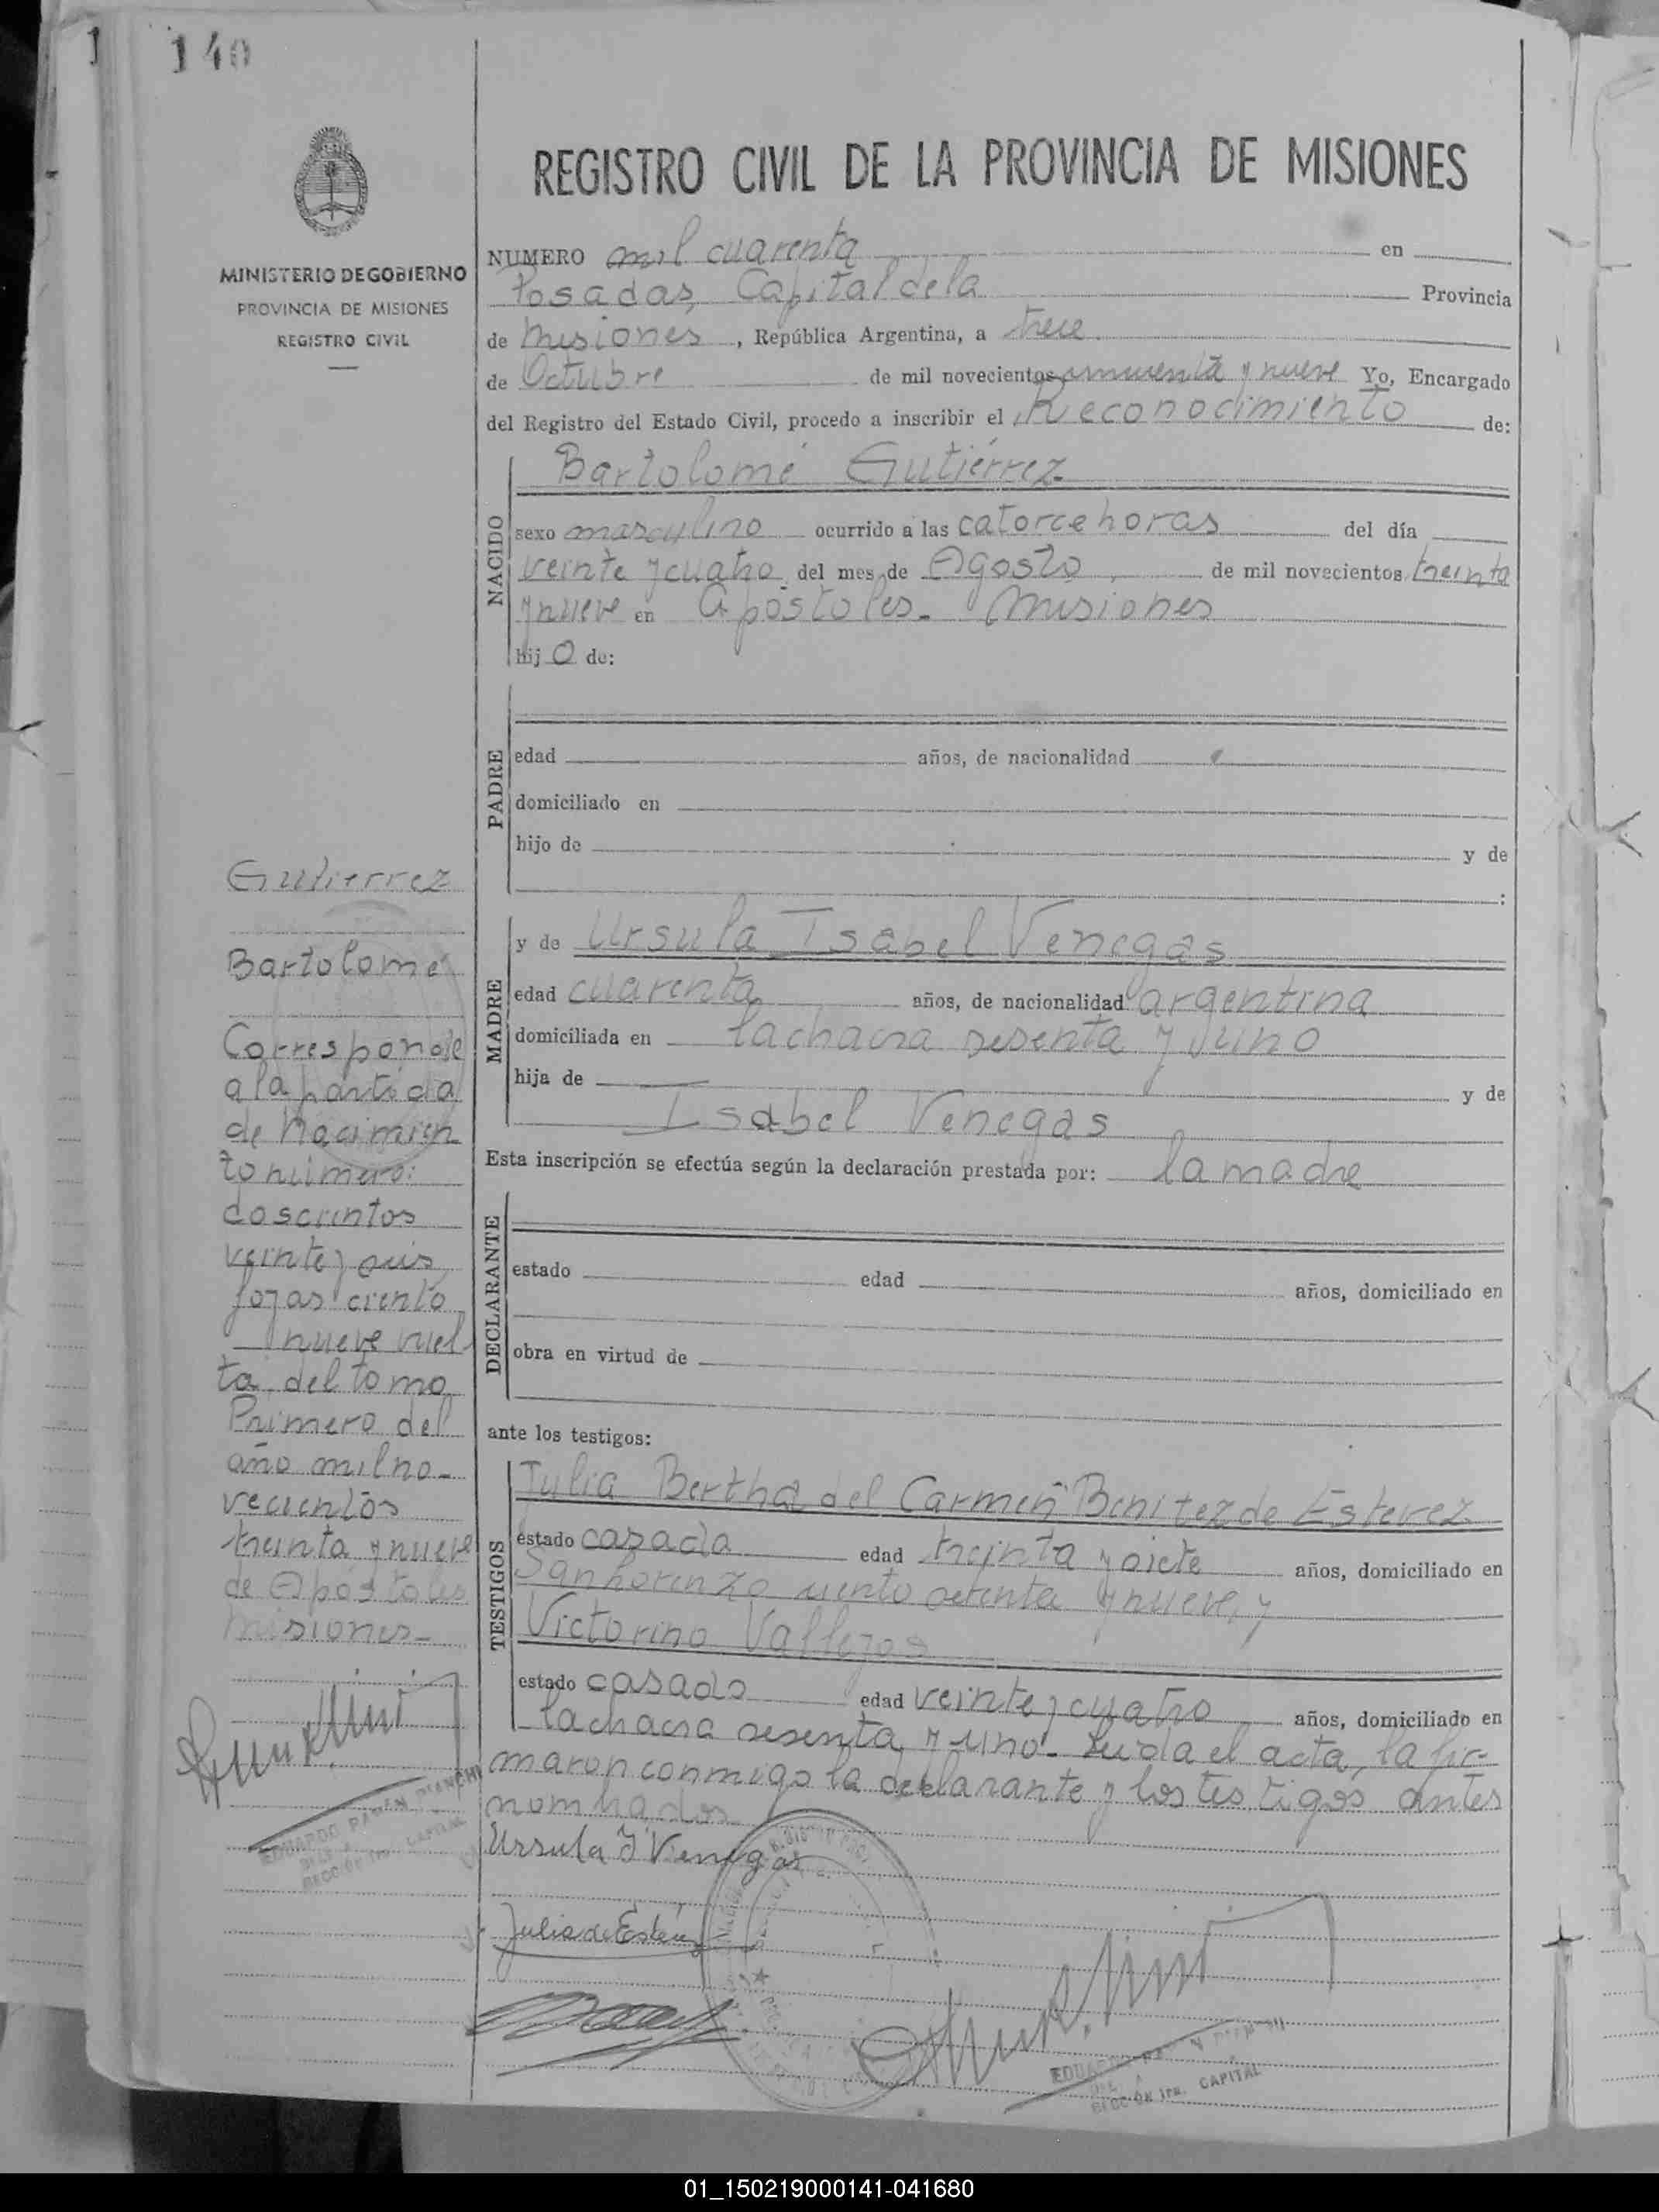 140
MINISTERIO DE GOBIERNO
PROVINCIA DE MISIONES
REGISTRO CIVIL
REGISTRO CIVIL DE LA PROVINCIA DE MISIONES
NUMERO mil cuarenta en
Posadas, Capital de la Provincia
de Misiones, República Argentina, a trece
de Octubre de mil novecientos cincuenta y nueve Yo, Encargado
del Registro del Estado Civil, procedo a inscribir el Reconocimiento de:
NACIDO
Bartolomé Gutiérrez
sexo masculino ocurrido a las catorce horas del día
veinte y cuatro del mes de Agosto de mil novecientos treinta
y nueve en Apóstoles - Misiones
hijo de:
PADRE
edad años, de nacionalidad
domiciliado en
hijo de y de
:
MADRE
y de Ursula Isabel Venegas
edad cuarenta años, de nacionalidad argentina
domiciliada en la chacra sesenta y uno
hija de — y de
Isabel Venegas
Esta inscripción se efectúa según la declaración prestada por: la madre
DECLARANTE
estado edad años, domiciliado en
obra en virtud de
ante los testigos:
TESTIGOS
Julia Bertha del Carmen Benitez de Estevez
estado casada edad treinta y siete años, domiciliado en
San Lorenzo ciento setenta y nueve, y
Victorino Vallejos
estado casado edad veinte y cuatro años, domiciliado en
la chacra sesenta y uno - Leída el acta, la fir-
maron conmigo la declarante y los testigos antes
nombrados
Ursula I Venegas
Julia de Estévez
EDUARDO
SECCION 1ra. CAPITAL
Gutierrez
Bartolomé
Corresponde
a la partida
de Nacimien
to número:
doscientos
veinte y seis
fojas ciento
nueve vuel
ta, del tomo
Primero del
año mil no-
vecientos
treinta y nueve
de Apóstoles
Misiones -
EDUARDO RAMON BIANCHI
SECCION 1ra. CAPITAL
01_150219000141-041680